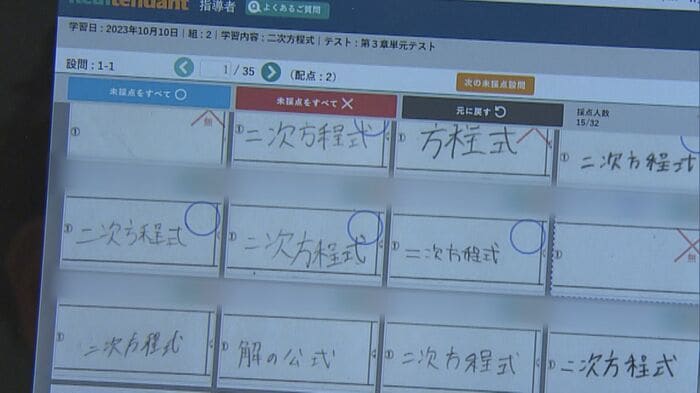 Realtendant 指導者 よくあるご質問
学習日：2023年10月10日｜組：2｜学習内容：二次方程式｜テスト：第３章単元テスト
設問：1-1 1 / 35 （配点：2） 次の未採点設問
未採点をすべて○ 未採点をすべて× 元に戻す 採点人数
15/32
① 無 ①二次方程式 ①方程式 ①二次方程式
①二次方程式 ①二次方程式 ①二次方程式 ① 無
①二次方程式 ①解の公式 ①二次方程式 ①二次方程式